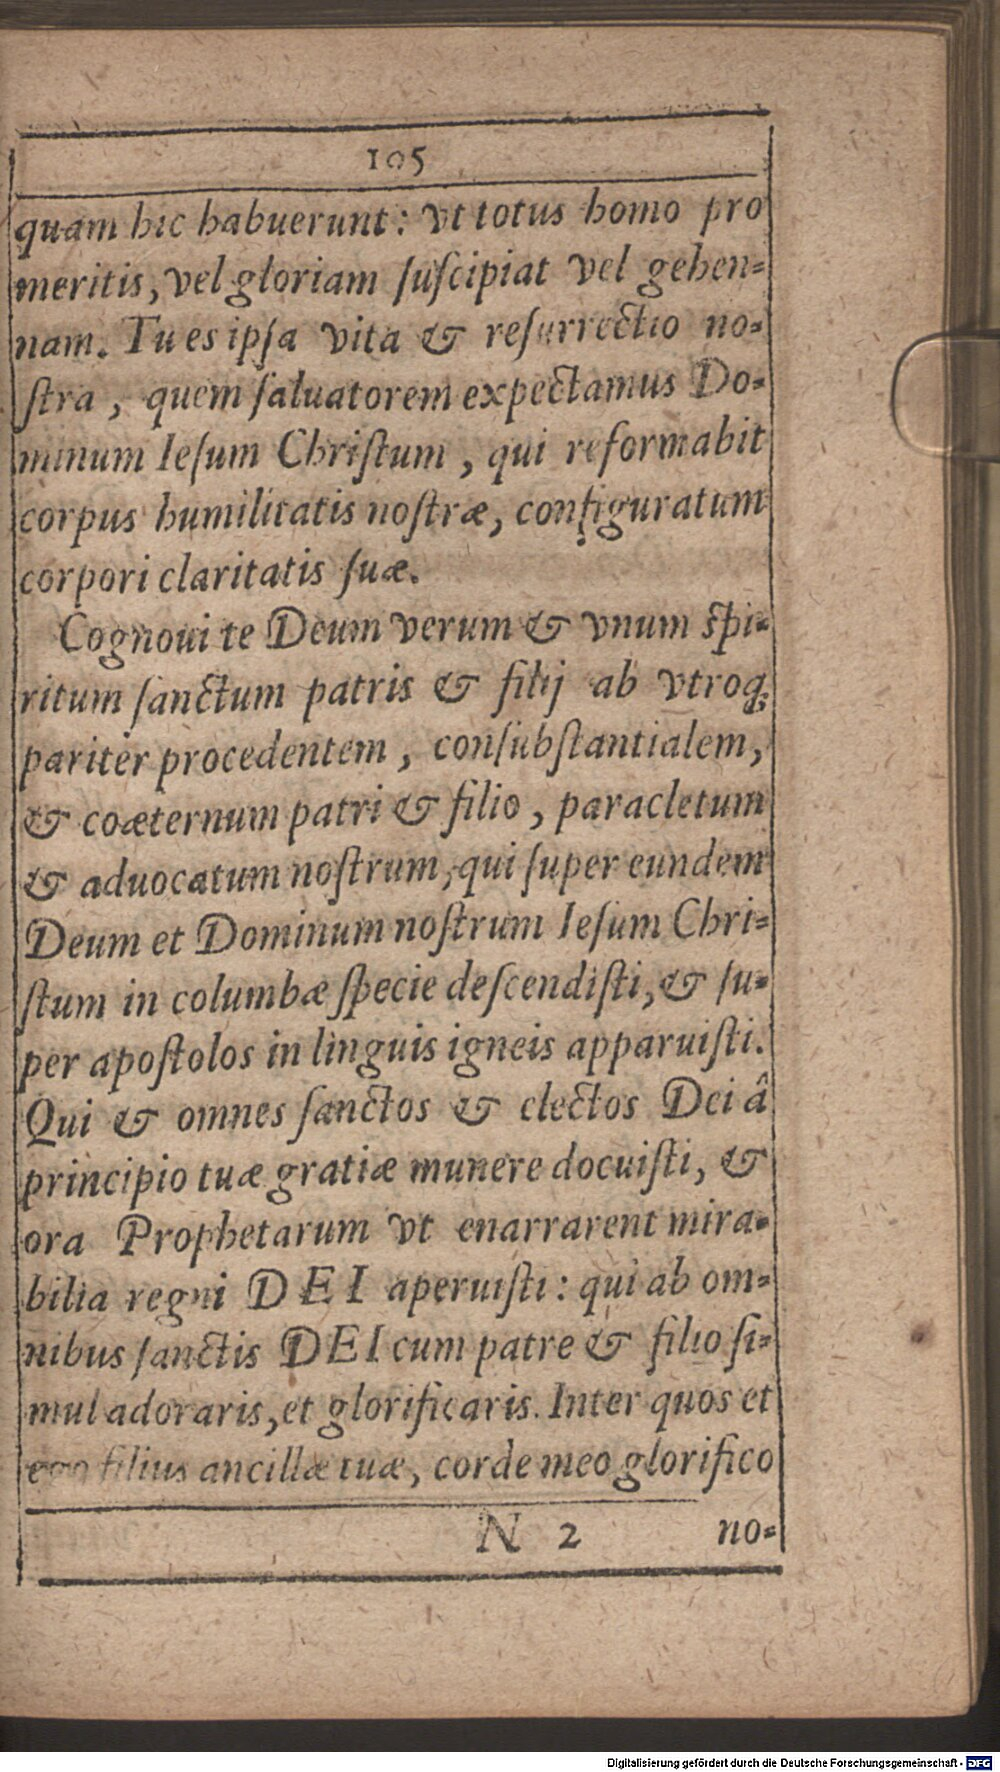 195
quam hic habuerunt: vt totus homo pro
meritis, vel gloriam ſuſcipiat vel gehen-
nam. Tu es ipſa vita & reſurrectio no-
ſtra, quem ſaluatorem expectamus Do-
minum Ieſum Chriſtum, qui reformabit
corpus humilitatis noſtræ, configuratum
corpori claritatis ſuæ.
Cognoui te Deum verum & vnum ſpi-
ritum ſanctum patris & filij ab vtroq;
pariter procedentem, conſubſtantialem,
& coæternum patri & filio, paracletum
& aduocatum noſtrum, qui ſuper eundem
Deum et Dominum noſtrum Ieſum Chri-
ſtum in columbæ ſpecie deſcendiſti, & ſu-
per apoſtolos in linguis igneis apparuiſti.
Qui & omnes ſanctos & electos Dei â
principio tuæ gratiæ munere docuiſti, &
ora Prophetarum vt enarrarent mira-
bilia regni DEI aperuiſti: qui ab om-
nibus ſanctis DEI cum patre & filio ſi-
mul adoraris, et glorificaris. Inter quos et
ego filius ancillæ tuæ, corde meo glorifico
N 2 no-
Digitalisierung gefördert durch die Deutsche Forschungsgemeinschaft - DFG